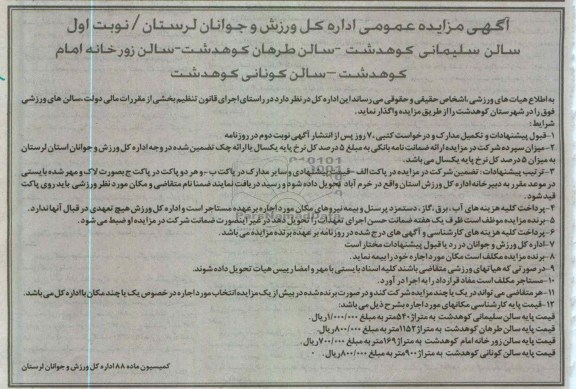 آگهی مزایده عمومی اداره کل ورزش و جوانان لرستان / نوبت اول
سالن سلیمانی کوهدشت -سالن طرهان کوهدشت-سالن زورخانه امام
کوهدشت – سالن کونانی کوهدشت
به اطلاع هیات های ورزشی ،اشخاص حقیقی و حقوقی می رساند این اداره کل در نظر دارد در راستای اجرای قانون تنظیم بخشی از مقررات مالی دولت ،سالن های ورزشی
فوق را در شهرستان کوهدشت را از طریق مزایده واگذار نماید.
شرایط :
۱-قبول پیشنهادات و تکمیل مدارک و درخواست کتبی ،۷ روز پس از انتشار آگهی نوبت دوم در روزنامه
۲-میزان سپرده شرکت در مزایده ارائه ضمانت نامه بانکی به مبلغ ۵ درصد کل نرخ پایه یکسال یا ارائه چک تضمین شده در وجه اداره کل ورزش و جوانان استان لرستان
به میزان ۵ درصد کل نرخ پایه یکسال می باشد.
۳-ترتیب پیشنهادات : تضمین شرکت در مزایده در پاکت الف -قیمت پیشنهادی و سایر مدارک در پاکت ب -و هر دو پاکت در پاکت ج بصورت لاک و مهر شده بایستی
در موعد مقرر به دبیرخانه اداره کل ورزش استان واقع در خرم آباد تحویل داده شود و رسید دریافت نمایند ضمنا نام متقاضی و مکان مورد نظر ورزشی باید روی پاکت
قید شود.
۴-پرداخت کلیه هزینه های آب ،برق ،گاز ، دستمزد پرسنل و بیمه نیروهای مکان مورد اجاره بر عهده مستاجر است و اداره کل ورزش هیچ تعهدی در قبال آنها ندارد.
۵-برنده مزایده موظف است ظرف یک هفته ضمانت حسن اجرای تعهدات را تحویل دهد در غیر اینصورت ضمانت شرکت در مزایده او ضبط می شود.
۶-پرداخت کلیه هزینه های کارشناسی و آگهی های درج شده در روزنامه بر عهده برنده مزایده می باشد.
۷-اداره کل ورزش و جوانان در رد یا قبول پیشنهادات مختار است
۸-برنده مزایده مکلف است مکان مورد اجاره خود را بیمه نماید.
۹-در صورتی که هیاتهای ورزشی متقاضی باشند کلیه اسناد بایستی با مهر و امضا رییس هیات تحویل داده شوند.
۱۰-مستاجر مکلف است مفاد قرارداد را به اجرا در آورد.
۱۱-هر متقاضی می تواند در یک یا چند مزایده شرکت کند و در صورت برنده شده در بیش از یک مزایده انتخاب مورد اجاره در خصوص یک یا چند مکان با اداره کل می باشد.
۱۲-قیمت پایه کارشناسی مکانهای مورد اجاره بشرح ذیل می باشد:
قیمت پایه سالن سلیمانی کوهدشت به متراژ ۵۴۰ متر به مبلغ ۱/۰۰۰/۰۰۰ریال.
قیمت پایه سالن طرهان کوهدشت به متراژ ۱۱۵۲متر به مبلغ ۸۰۰/۰۰۰ریال.
قیمت پایه سالن زورخانه امام کوهدشت به متراژ ۱۶۹متر به مبلغ ۷۰۰/۰۰۰ریال.
قیمت پایه سالن کونانی کوهدشت به متراژ ۹۰۰متر به مبلغ ۸۰۰/۰۰۰ریال.
کمیسیون ماده ۸۸ اداره کل ورزش و جوانان لرستان